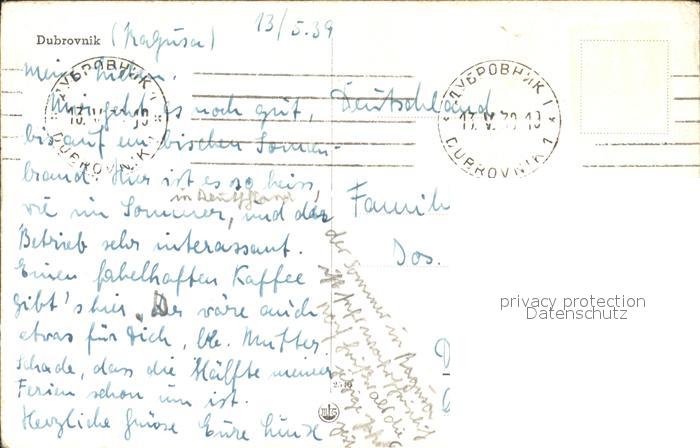 Dubrovnik (Ragusa) 13/5.39
Meine Lieben.
Mir geht es noch gut,
bis auf ein bischen Sonnen-
brand. Hier ist es so heiss,
in Deutschland
wie im Sommer, und der
Betrieb sehr interessant.
Einen fabelhaften Kaffee
gibt's hier. Der wäre auch
etwas für Dich, lb. Mutter.
Schade, dass die Hälfte meiner
Ferien schon um ist.
Herzliche Grüsse Eure
ДУБРОВНИК 1
DUBROVNIK 1
Deutschland
ДУБРОВНИК 1
13. V. 39-19
DUBROVNIK 1
Famili
Jos.
der Sommer in Ragusa
privacy protection
Datenschutz